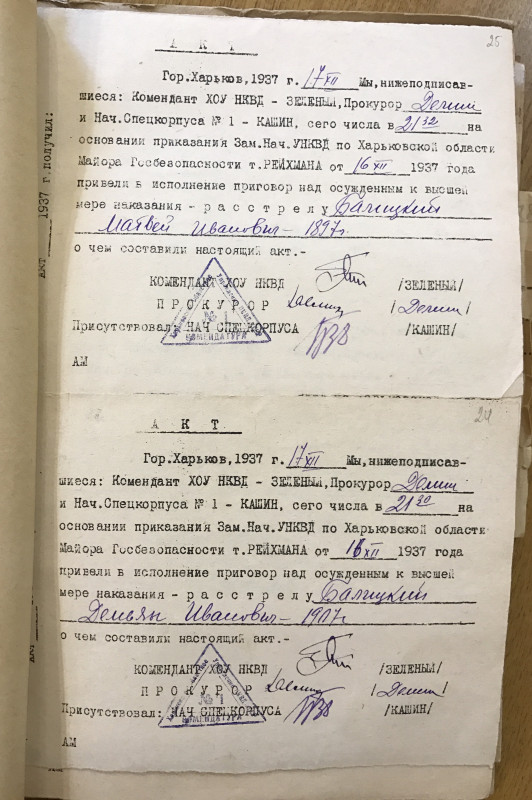 25
А К Т
Гор.Харьков,1937 г. 17 XII Мы,нижеподписав-
шиеся: Комендант ХОУ НКВД - ЗЕЛЕНЫЙ,Прокурор
и Нач.Спецкорпуса № 1 - КАШИН, сего числа в 21 32 на
основании приказания Зам.Нач.УНКВД по Харьковской области
Майора Госбезопасности т.РЕЙХМАНА от 16 XII 1937 года
привели в исполнение приговор над осужденным к высшей
мере наказания - р а с с т р е л у Балицкий
Матвей Иванович - 1897г.
о чем составили настоящий акт.-
КОМЕНДАНТ ХОУ НКВД /ЗЕЛЕНЫЙ/
П Р О К У Р О Р
Присутствовал: НАЧ СПЕЦКОРПУСА /КАШИН/
№ 1
КОМЕНДАТУРА
АМ
1937 г.получил:
24
А К Т
Гор.Харьков,1937 г. 17 XII Мы,нижеподписав-
шиеся: Комендант ХОУ НКВД - ЗЕЛЕНЫЙ,Прокурор
и Нач.Спецкорпуса № 1 - КАШИН, сего числа в 21 30 на
основании приказания Зам.Нач.УНКВД по Харьковской области
Майора Госбезопасности т.РЕЙХМАНА от 16 XII 1937 года
привели в исполнение приговор над осужденным к высшей
мере наказания - р а с с т р е л у Балицкий
Демьян Иванович - 1907г.
о чем составили настоящий акт.-
КОМЕНДАНТ ХОУ НКВД /ЗЕЛЕНЫЙ/
П Р О К У Р О Р
Присутствовал: НАЧ СПЕЦКОРПУСА /КАШИН/
№ 1
КОМЕНДАТУРА
АМ